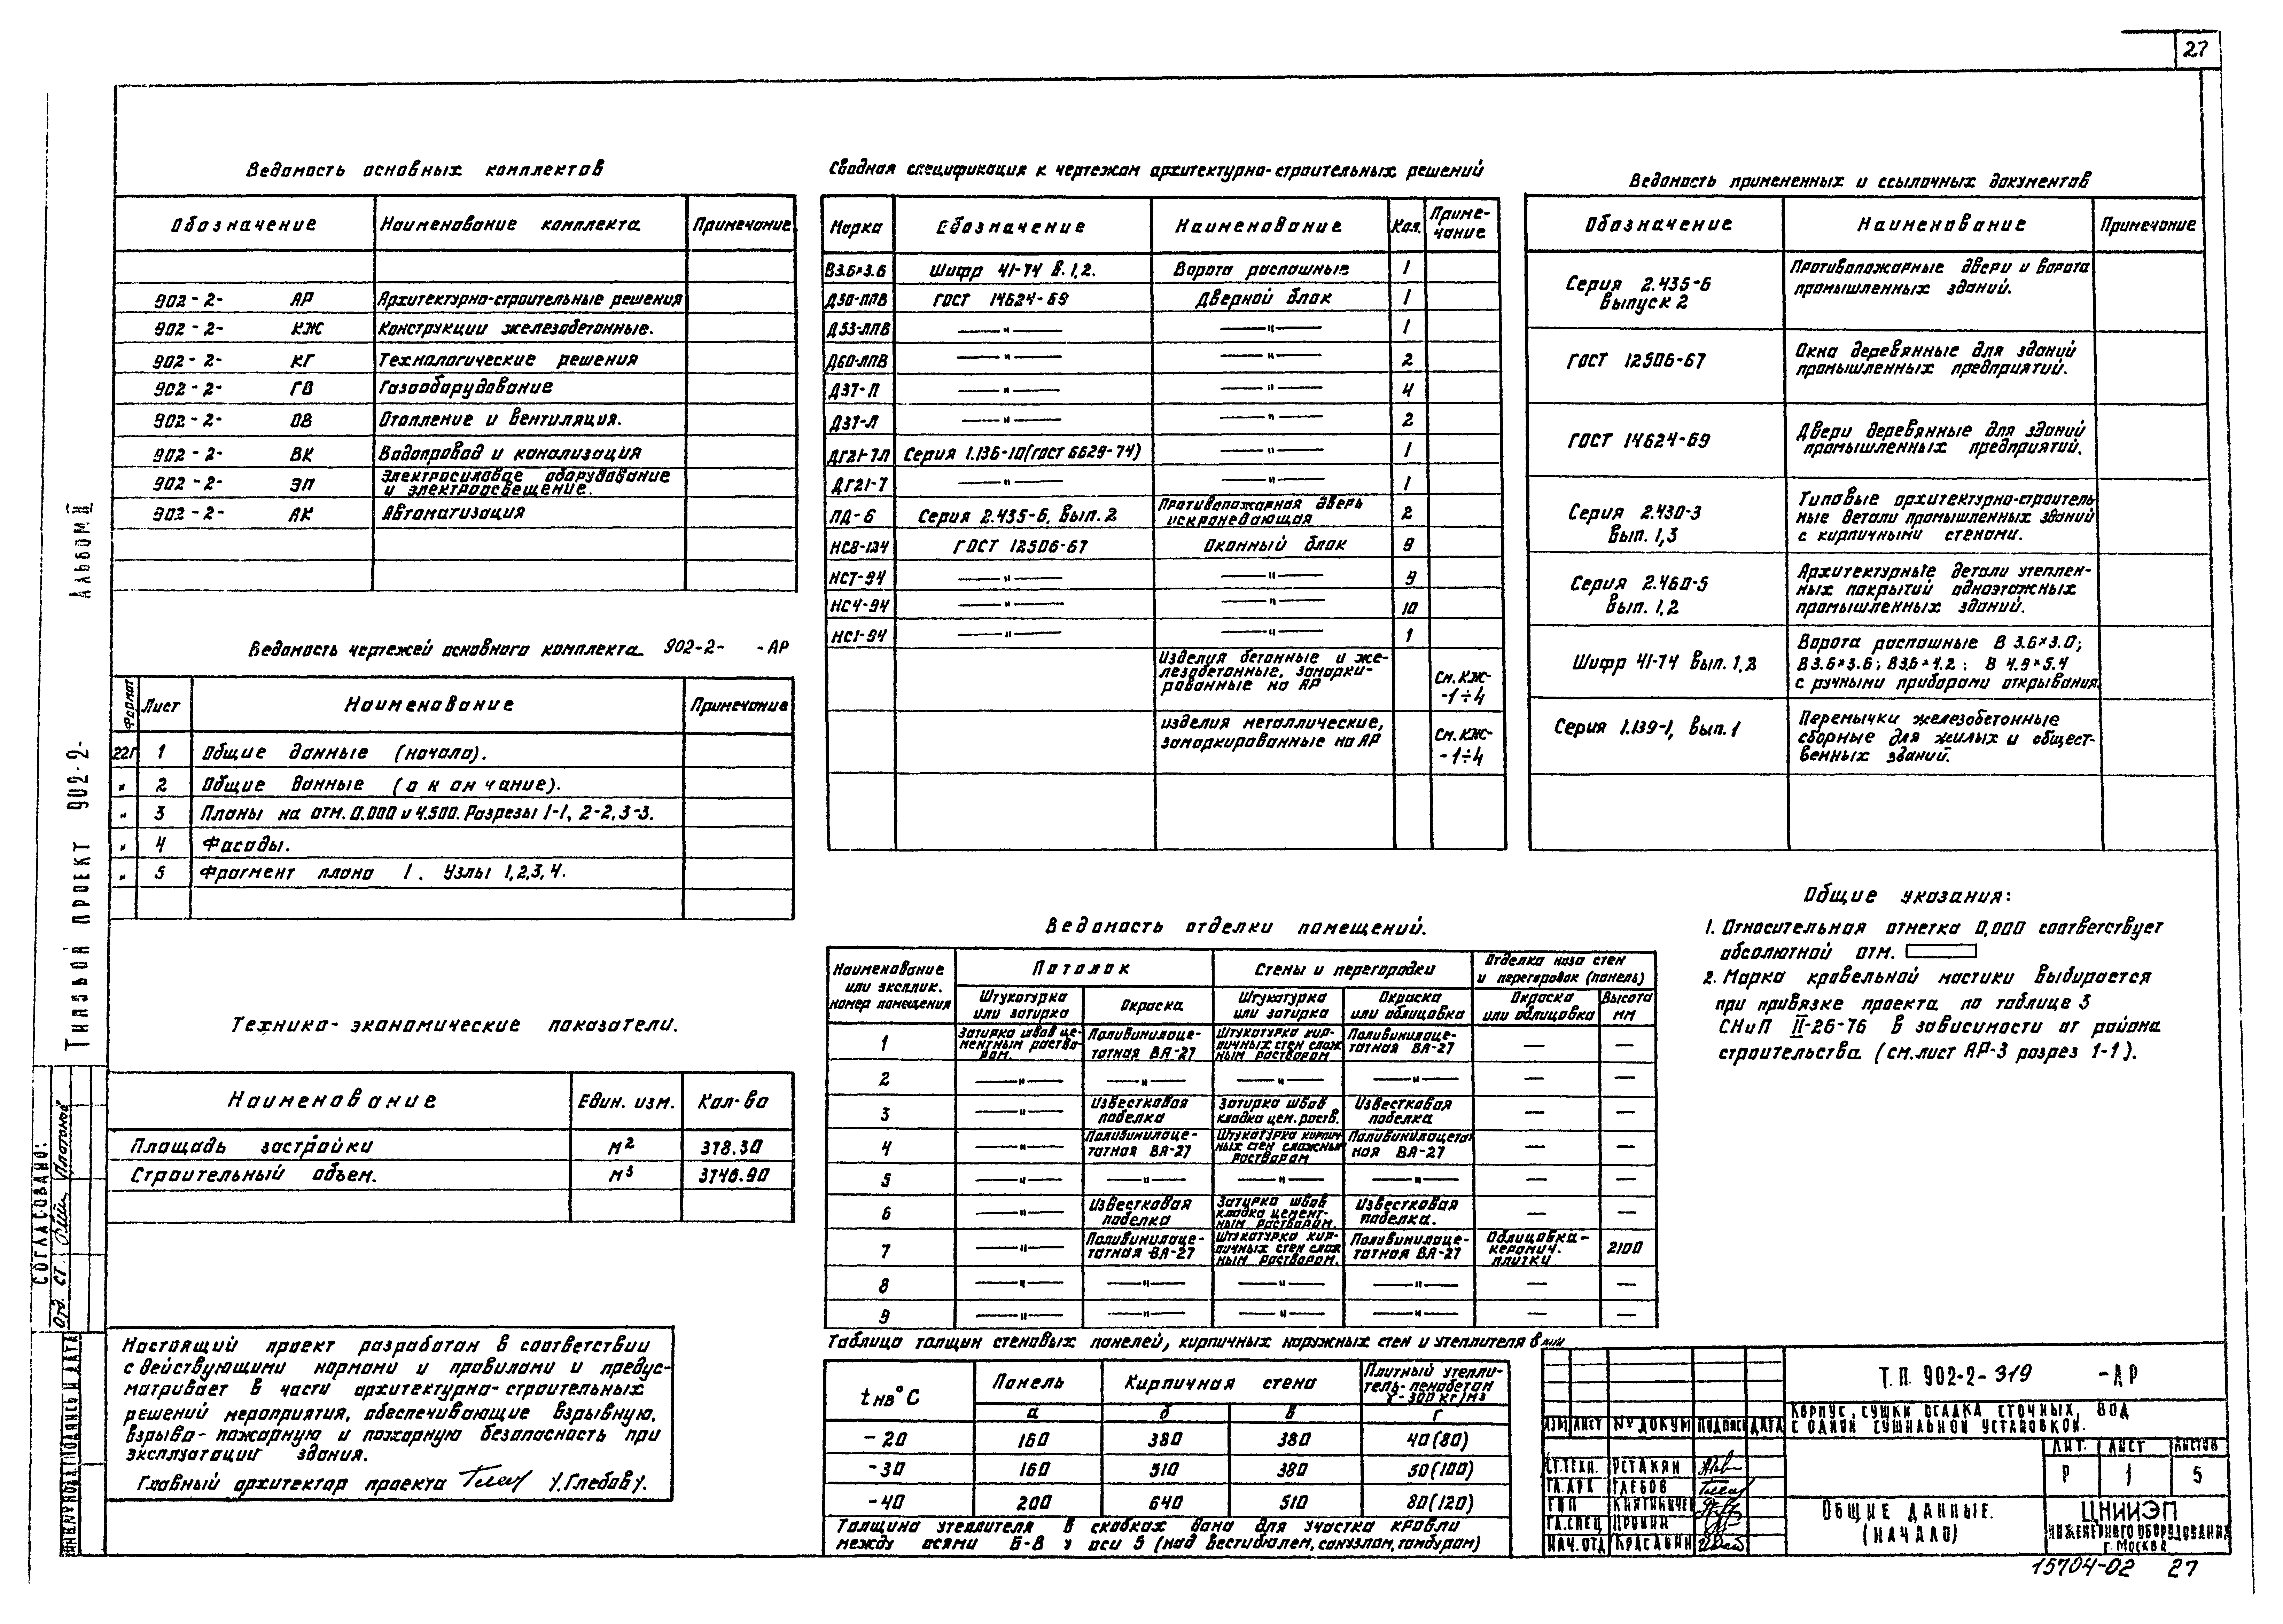 27
Ведомость основных комплектов
Обозначение | Наименование комплекта | Примечание
902-2- АР | Архитектурно-строительные решения
902-2- КЖ | Конструкции железобетонные.
902-2- КГ | Технологические решения
902-2- ГВ | Газооборудование
902-2- ОВ | Отопление и вентиляция.
902-2- ВК | Водопровод и канализация
902-2- ЭП | Электросиловое оборудование
и электроосвещение.
902-2- АК | Автоматизация
Ведомость чертежей основного комплекта 902-2- -АР
Формат | Лист | Наименование | Примечание
22Г | 1 | Общие данные (начало).
" | 2 | Общие данные (окончание).
" | 3 | Планы на отм. 0.000 и 4.500. Разрезы 1-1, 2-2, 3-3.
" | 4 | Фасады.
" | 5 | Фрагмент плана 1. Узлы 1,2,3,4.
Технико-экономические показатели.
Наименование | Един. изм. | Кол-во
Площадь застройки | м² | 378.30
Строительный объем. | м³ | 3746.90
Настоящий проект разработан в соответствии
с действующими нормами и правилами и предус-
матривает в части архитектурно-строительных
решений мероприятия, обеспечивающие взрывную,
взрыво-пожарную и пожарную безопасность при
эксплуатации здания.
Главный архитектор проекта /Глебов/.
Сводная спецификация к чертежам архитектурно-строительных решений
Марка | Обозначение | Наименование | Кол. | Приме-
чание
В3.6×3.6 | Шифр 41-74 в.1,2. | Ворота распашные | 1
Д50-ППВ | ГОСТ 14624-69 | Дверной блок | 1
Д53-ЛПВ | —"— | —"— | 1
Д60-ЛПВ | —"— | —"— | 2
Д37-П | —"— | —"— | 4
Д37-Л | —"— | —"— | 2
ДГ21-7П | Серия 1.136-10(ГОСТ 6629-74) | —"— | 1
ДГ21-7 | —"— | —"— | 1
ПД-6 | Серия 2.435-6, вып.2 | Противопожарная дверь
искронедающая | 2
НС8-124 | ГОСТ 12506-67 | Оконный блок | 9
НС7-94 | —"— | —"— | 9
НС4-94 | —"— | —"— | 10
НС1-94 | —"— | —"— | 1
Изделия бетонные и же-
лезобетонные, замарки-
рованные на АР | См. КЖ-
-1÷4
изделия металлические,
замаркированные на АР | См. КЖ-
-1÷4
Ведомость примененных и ссылочных документов
Обозначение | Наименование | Примечание
Серия 2.435-6
выпуск 2 | Противопожарные двери и ворота
промышленных зданий.
ГОСТ 12506-67 | Окна деревянные для зданий
промышленных предприятий.
ГОСТ 14624-69 | Двери деревянные для зданий
промышленных предприятий.
Серия 2.430-3
Вып. 1,3 | Типовые архитектурно-строитель
ные детали промышленных зданий
с кирпичными стенами.
Серия 2.460-5
Вып. 1,2 | Архитектурные детали утеплен-
ных покрытий одноэтажных
промышленных зданий.
Шифр 41-74 Вып. 1,2 | Ворота распашные В 3.6×3.0;
В3.6×3.6; В3.6×4.2; В 4.9×5.4
с ручными приборами открывания.
Серия 1.139-1, вып. 1 | Перемычки железобетонные
сборные для жилых и общест-
венных зданий.
Общие указания:
1. Относительная отметка 0,000 соответствует
абсолютной отм.
2. Марка кровельной мастики выбирается
при привязке проекта по таблице 3
СНиП II-26-76 в зависимости от района
строительства (см. лист АР-3 разрез 1-1).
Ведомость отделки помещений.
Наименование
или эксплик.
номер помещения | Потолок | Стены и перегородки | Отделка низа стен
и перегородок (панель)
Штукатурка
или затирка | Окраска | Штукатурка
или затирка | Окраска
или облицовка | Окраска
или облицовка | Высота
мм
1 | Затирка швов це-
ментным раство-
ром. | Поливинилаце-
татная ВА-27 | Штукатурка кир-
пичных стен слож
ным раствором | Поливинилаце-
татная ВА-27 | — | —
2 | —"— | —"— | —"— | —"— | — | —
3 | —"— | Известковая
побелка | Затирка швов
кладки цем. раств. | Известковая
побелка | — | —
4 | —"— | Поливинилаце-
татная ВА-27 | Штукатурка кирпич
ных стен сложным
раствором | Поливинилацетат
ная ВА-27 | — | —
5 | —"— | —"— | —"— | —"— | — | —
6 | —"— | Известковая
побелка | Затирка швов
кладки цемент-
ным раствором. | Известковая
побелка. | — | —
7 | —"— | Поливинилаце-
татная ВА-27 | Штукатурка кир-
пичных стен слож
ным раствором. | Поливинилаце-
татная ВА-27 | Облицовка-
керамич.
плитки | 2100
8 | —"— | —"— | —"— | —"— | — | —
9 | —"— | —"— | —"— | —"— | — | —
Таблица толщин стеновых панелей, кирпичных наружных стен и утеплителя в мм
tнв°С | Панель | Кирпичная стена | Плитный утепли-
тель-пенобетон
γ-300 кг/м3
а | б | в | г
-20 | 160 | 380 | 380 | 40(80)
-30 | 160 | 510 | 380 | 50(100)
-40 | 200 | 640 | 510 | 80(120)
Толщина утеплителя в скобках дана для участка кровли
между осями Б-В у оси 5 (над вестибюлем, санузлом, тамбуром)
Т.П. 902-2-319 -АР
Корпус, сушки осадка сточных, вод
с одной сушильной установкой.
Изм Лист № докум Подпись Дата
Ст.техн. Устакян
Гл.арх Глебов
ГИП
Гл.спец Пронин
Нач.отд Красавин
Лит. Лист Листов
Р 1 5
Общие данные.
(начало)
ЦНИИЭП
инженерного оборудования
г. Москва
15704-02 27
Альбом II
Типовой проект 902-2-
Согласовано:
Отд. ст. Платонов
Инв.№ подл. Подпись и дата